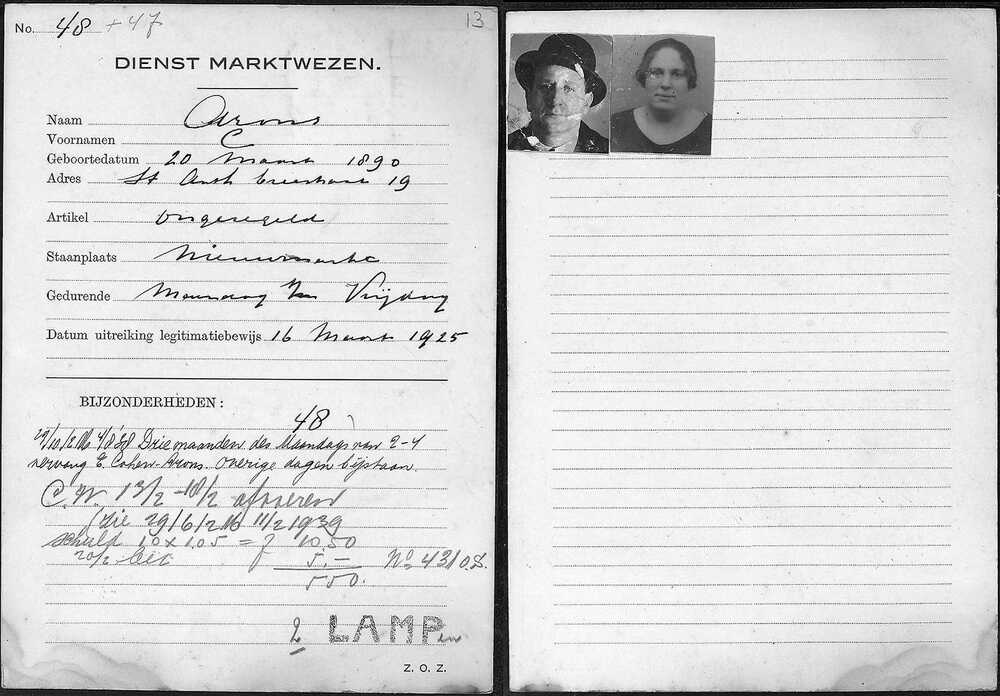 No. 48 + 47
13
DIENST MARKTWEZEN.
Naam Arons
Voornamen C
Geboortedatum 20 Maart 1890
Adres St Anth breestraat 19
Artikel ongeregeld
Staanplaats Nieuwmarkt
Gedurende Maandag t/m Vrijdag
Datum uitreiking legitimatiebewijs 16 Maart 1925
BIJZONDERHEDEN:
48
4/8'38 Drie maanden des Maandags van 2-4
vervang E. Cohen-Arons. Overige dagen bijstaan.
C.W. 13/2 - 18/2 afvoeren
(zie 29/6/2 M 11/2 1939
schuld 10 x 1.05 = f 10.50
20/2 5.- No 4310.S.
550.
2 LAMPen
Z. O. Z.